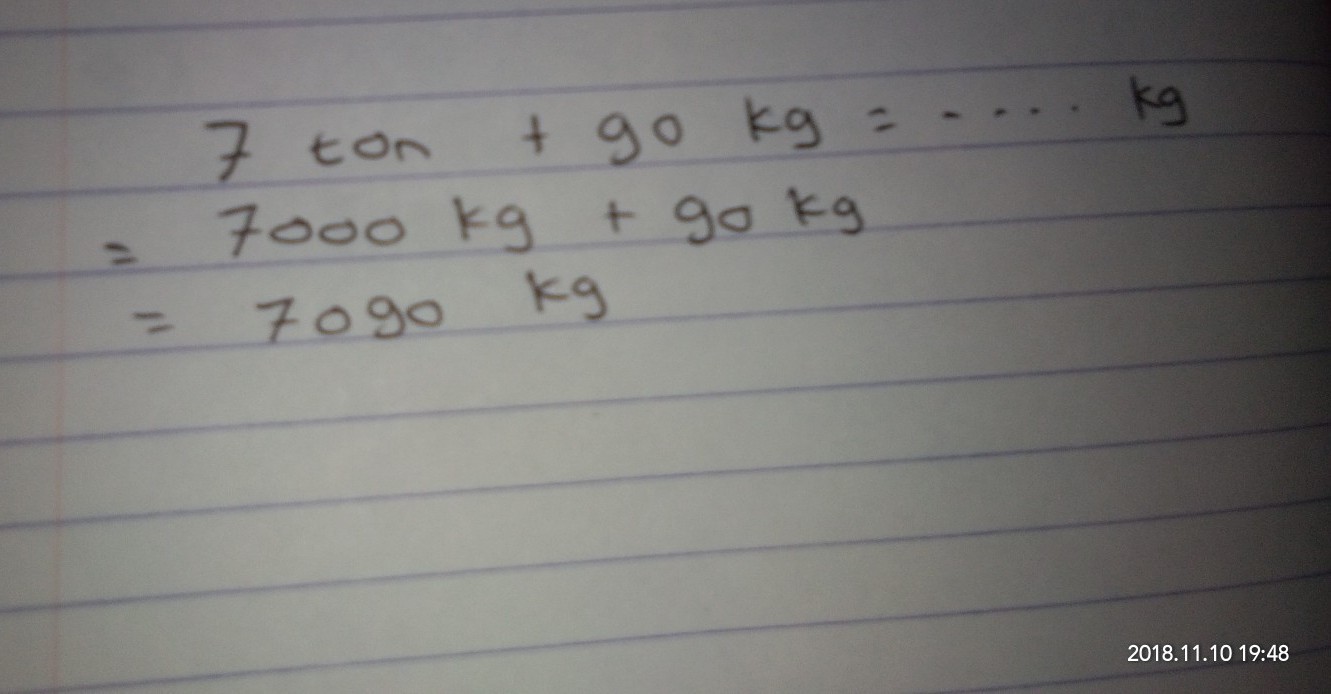 7 ton + 90 kg = .... kg
= 7000 kg + 90 kg
= 7090 kg
2018.11.10 19:48